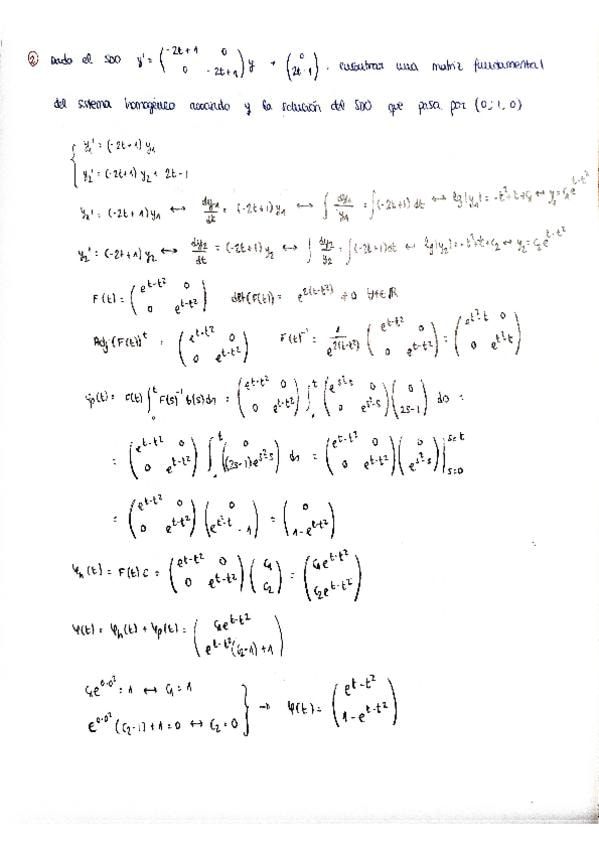 ② Dado el SDO y' = (-2t+1 0 ; 0 -2t+1) y + (0 ; 2t-1), encontrar una matriz fundamental
del sistema homogéneo asociado y la solución del SDO que pasa por (0; 1, 0)
{ y₁' = (-2t+1) y₁
y₂' = (-2t+1) y₂ + 2t-1
y₁' = (-2t+1) y₁ ↔ dy₁/dt = (-2t+1) y₁ ↔ ∫ dy₁/y₁ = ∫(-2t+1) dt ↔ lg|y₁| = -t²+t+c₁ ↔ y₁ = c₁e^(t-t²)
y₂' = (-2t+1) y₂ ↔ dy₂/dt = (-2t+1) y₂ ↔ ∫ dy₂/y₂ = ∫(-2t+1) dt ↔ lg|y₂| = -t²+t+c₂ ↔ y₂ = c₂e^(t-t²)
F(t) = (e^(t-t²) 0 ; 0 e^(t-t²)) det(F(t)) = e^(2(t-t²)) ≠ 0 ∀t∈ℝ
Adj(F(t))^t = (e^(t-t²) 0 ; 0 e^(t-t²)) F(t)^-1 = 1/e^(2(t-t²)) (e^(t-t²) 0 ; 0 e^(t-t²)) = (e^(t²-t) 0 ; 0 e^(t²-t))
φp(t) = F(t) ∫₀^t F(s)^-1 b(s) ds = (e^(t-t²) 0 ; 0 e^(t-t²)) ∫₀^t (e^(s²-s) 0 ; 0 e^(s²-s)) (0 ; 2s-1) ds =
= (e^(t-t²) 0 ; 0 e^(t-t²)) ∫₀^t (0 ; (2s-1)e^(s²-s)) ds = (e^(t-t²) 0 ; 0 e^(t-t²)) (0 ; e^(s²-s)) |_(s=0)^(s=t)
= (e^(t-t²) 0 ; 0 e^(t-t²)) (0 ; e^(t²-t) - 1) = (0 ; 1-e^(t-t²))
φh(t) = F(t) C = (e^(t-t²) 0 ; 0 e^(t-t²)) (c₁ ; c₂) = (c₁e^(t-t²) ; c₂e^(t-t²))
φ(t) = φh(t) + φp(t) = (c₁e^(t-t²) ; e^(t-t²)(c₂-1)+1)
c₁e^(0-0²) = 1 ↔ c₁ = 1
e^(0-0²)(c₂-1)+1 = 0 ↔ c₂ = 0 } → φ(t) = (e^(t-t²) ; 1-e^(t-t²))